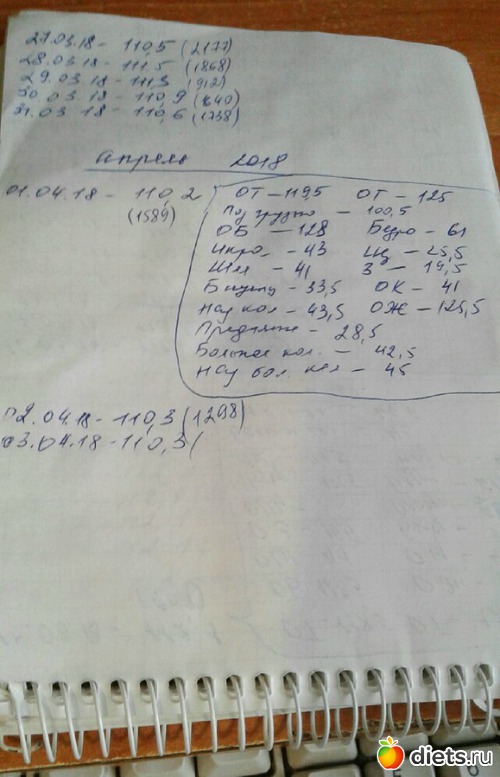 27.03.18 - 110,5 (2177)
28.03.18 - 111,5 (1868)
29.03 18 - 111,3 (912)
30 03.18 - 110,9 (1640)
31.03 18 - 110,6 (1738)
апрель 2018
01.04.18 - 110,2
(1589)
ОТ - 119,5 ОТ - 125
Под грудью - 100,5
ОБ - 128 Бедро - 61
Икро - 43 - 25,5
Шея - 41 З - 19,5
Бицепс - 33,5 ОК - 41
Над кол - 43,5 ОЖ - 125,5
Предплечье - 28,5
Больное кол. - 42,5
Над бол. кол - 45
02.04.18 - 110,3 (1298)
03.04.18 - 110,3 (
diets.ru